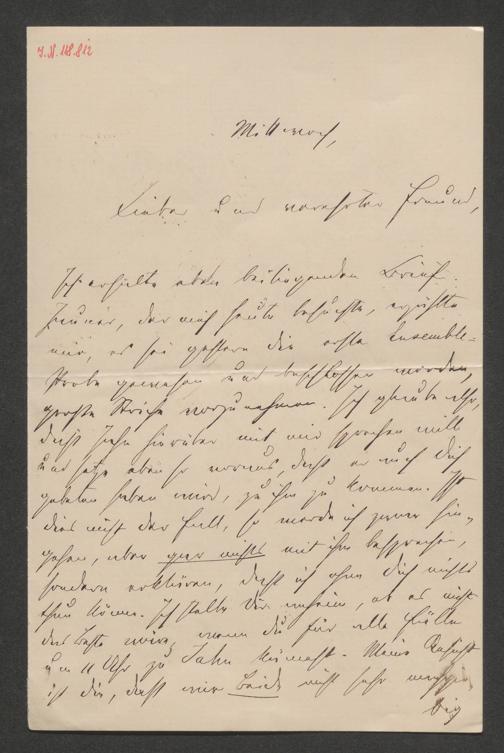 J.N. 118.812
Mittwoch,
Lieber und verehrter Freund,
Ich erhielte eben beiliegenden Brief.
, der mich heute besuchte, erzählte
mir, es sei gestern die erste Ensemble-
Probe gewesen und beschlossen worden,
große Striche vorzunehmen. Ich glaube also,
daß Jahn hierüber mit mir sprechen will
und setze eben so voraus, daß er auch Dich
gebeten haben wird, zu ihm zu kommen. Ist
dies nicht der Fall, so werde ich zwar hin-
gehen, aber gar nichts mit ihm besprechen,
sondern erklären, daß ich ohne Dich nichts
thun könne. Ich stelle Dir anheim, ob es nicht
das Beste wäre, wenn du für alle Fälle
um 11 Uhr zu Jahn kämest. Meine Ansicht
ist die, daß wir Beide nicht sehr
big